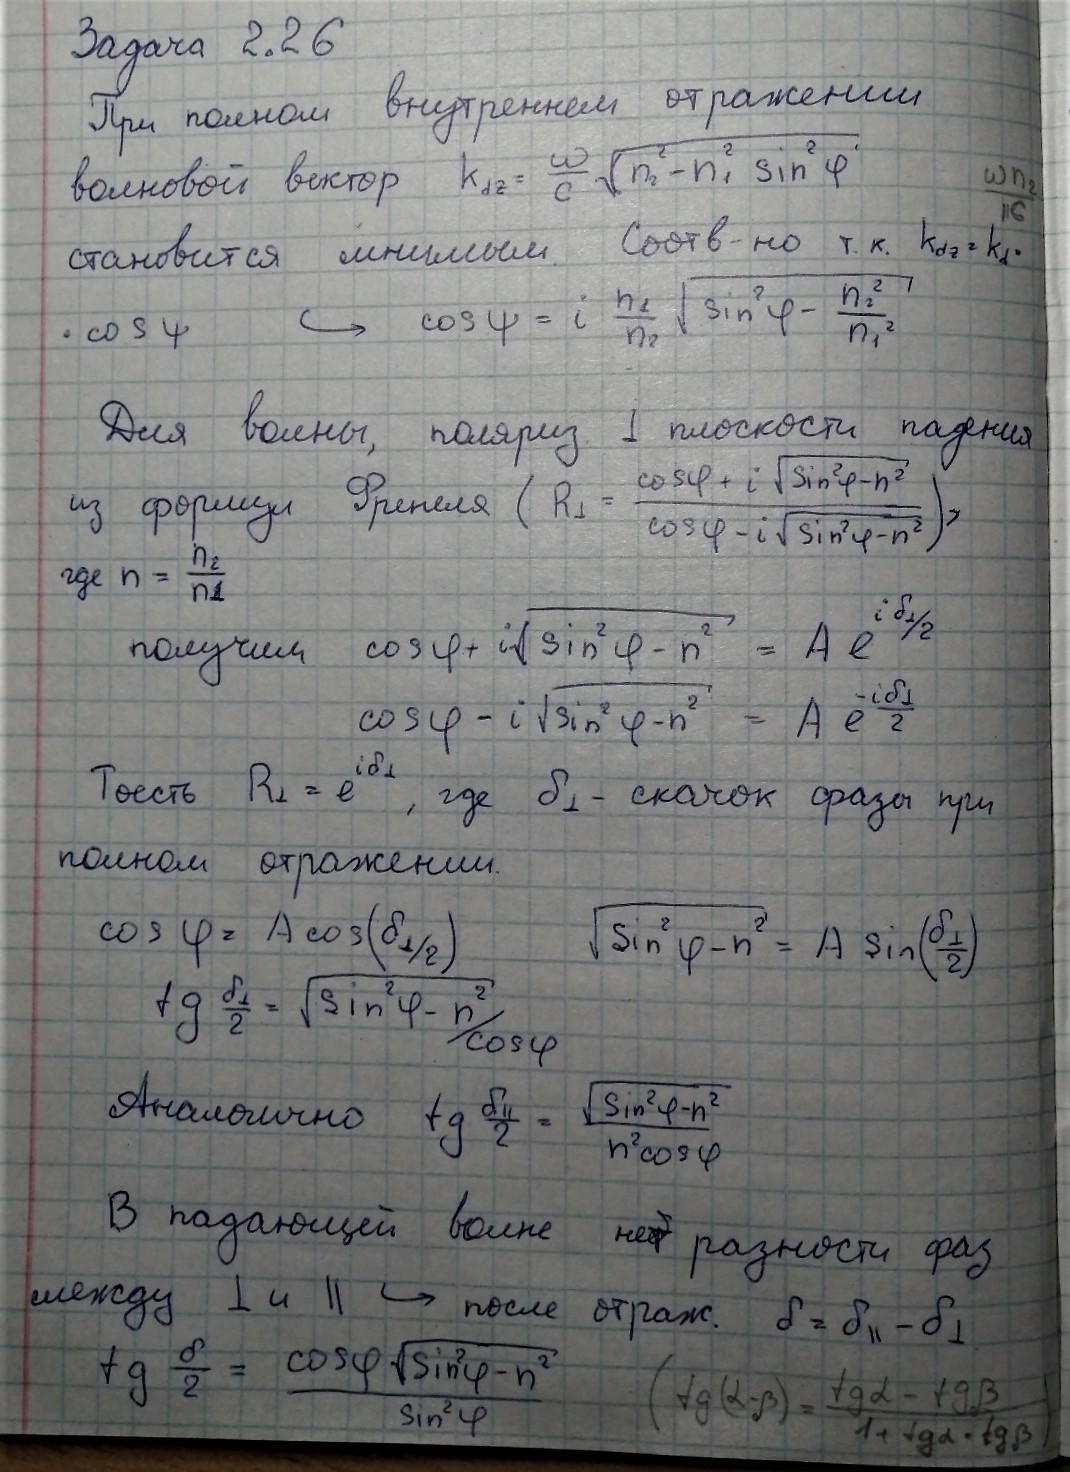 Задача 2.26
При полном внутреннем отражении
волновой вектор k_{dz} = \frac{ω}{c} \sqrt{n_2^2 - n_1^2 sin^2 φ}
\frac{ωn_2}{c}
становится мнимым. Соотв-но т.к. k_{dz} = k_d ·
· cos ψ ↪ cos ψ = i \frac{n_1}{n_2} \sqrt{sin^2 φ - \frac{n_2^2}{n_1^2}}
Для волны, поляриз. ⊥ плоскости падения
из формул Френеля ( R_⊥ = \frac{cosφ + i \sqrt{sin^2φ - n^2}}{cosφ - i \sqrt{sin^2φ - n^2}} ),
где n = \frac{n_2}{n_1}
получим cosφ + i \sqrt{sin^2 φ - n^2} = A e^{iδ_⊥/2}
cosφ - i \sqrt{sin^2 φ - n^2} = A e^{-i\frac{δ_⊥}{2}}
Тоесть R_⊥ = e^{iδ_⊥}, где δ_⊥ - скачок фазы при
полном отражении.
cos φ = A cos(δ_⊥/2) \sqrt{sin^2 φ - n^2} = A sin(\frac{δ_⊥}{2})
tg \frac{δ_⊥}{2} = \sqrt{sin^2 φ - n^2} / cosφ
Аналогично tg \frac{δ_{||}}{2} = \frac{\sqrt{sin^2φ - n^2}}{n^2 cosφ}
В падающей волне нет разности фаз
между ⊥ и || ↪ после отраж. δ = δ_{||} - δ_⊥
tg \frac{δ}{2} = \frac{cosφ \sqrt{sin^2φ - n^2}}{sin^2 φ} ( tg(α-β) = \frac{tgα - tgβ}{1 + tgα · tgβ} )